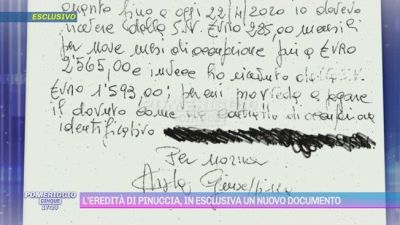 ESCLUSIVO
quanto fino a oggi 22/4/2020 io dovevo
ricevere dalla S.V. EURO 285,00 mensili
per nove mesi di occupazione pari a EURO
2'565,00 e invece ho ricevuto dalla S.V.
EURO 1'593,00; perciò provveda a pagare
il dovuto come da contratto di occupazione
identificativo
Per
POMERIGGIO
CINQUE
17:30
L'EREDITÀ DI PINUCCIA, IN ESCLUSIVA UN NUOVO DOCUMENTO